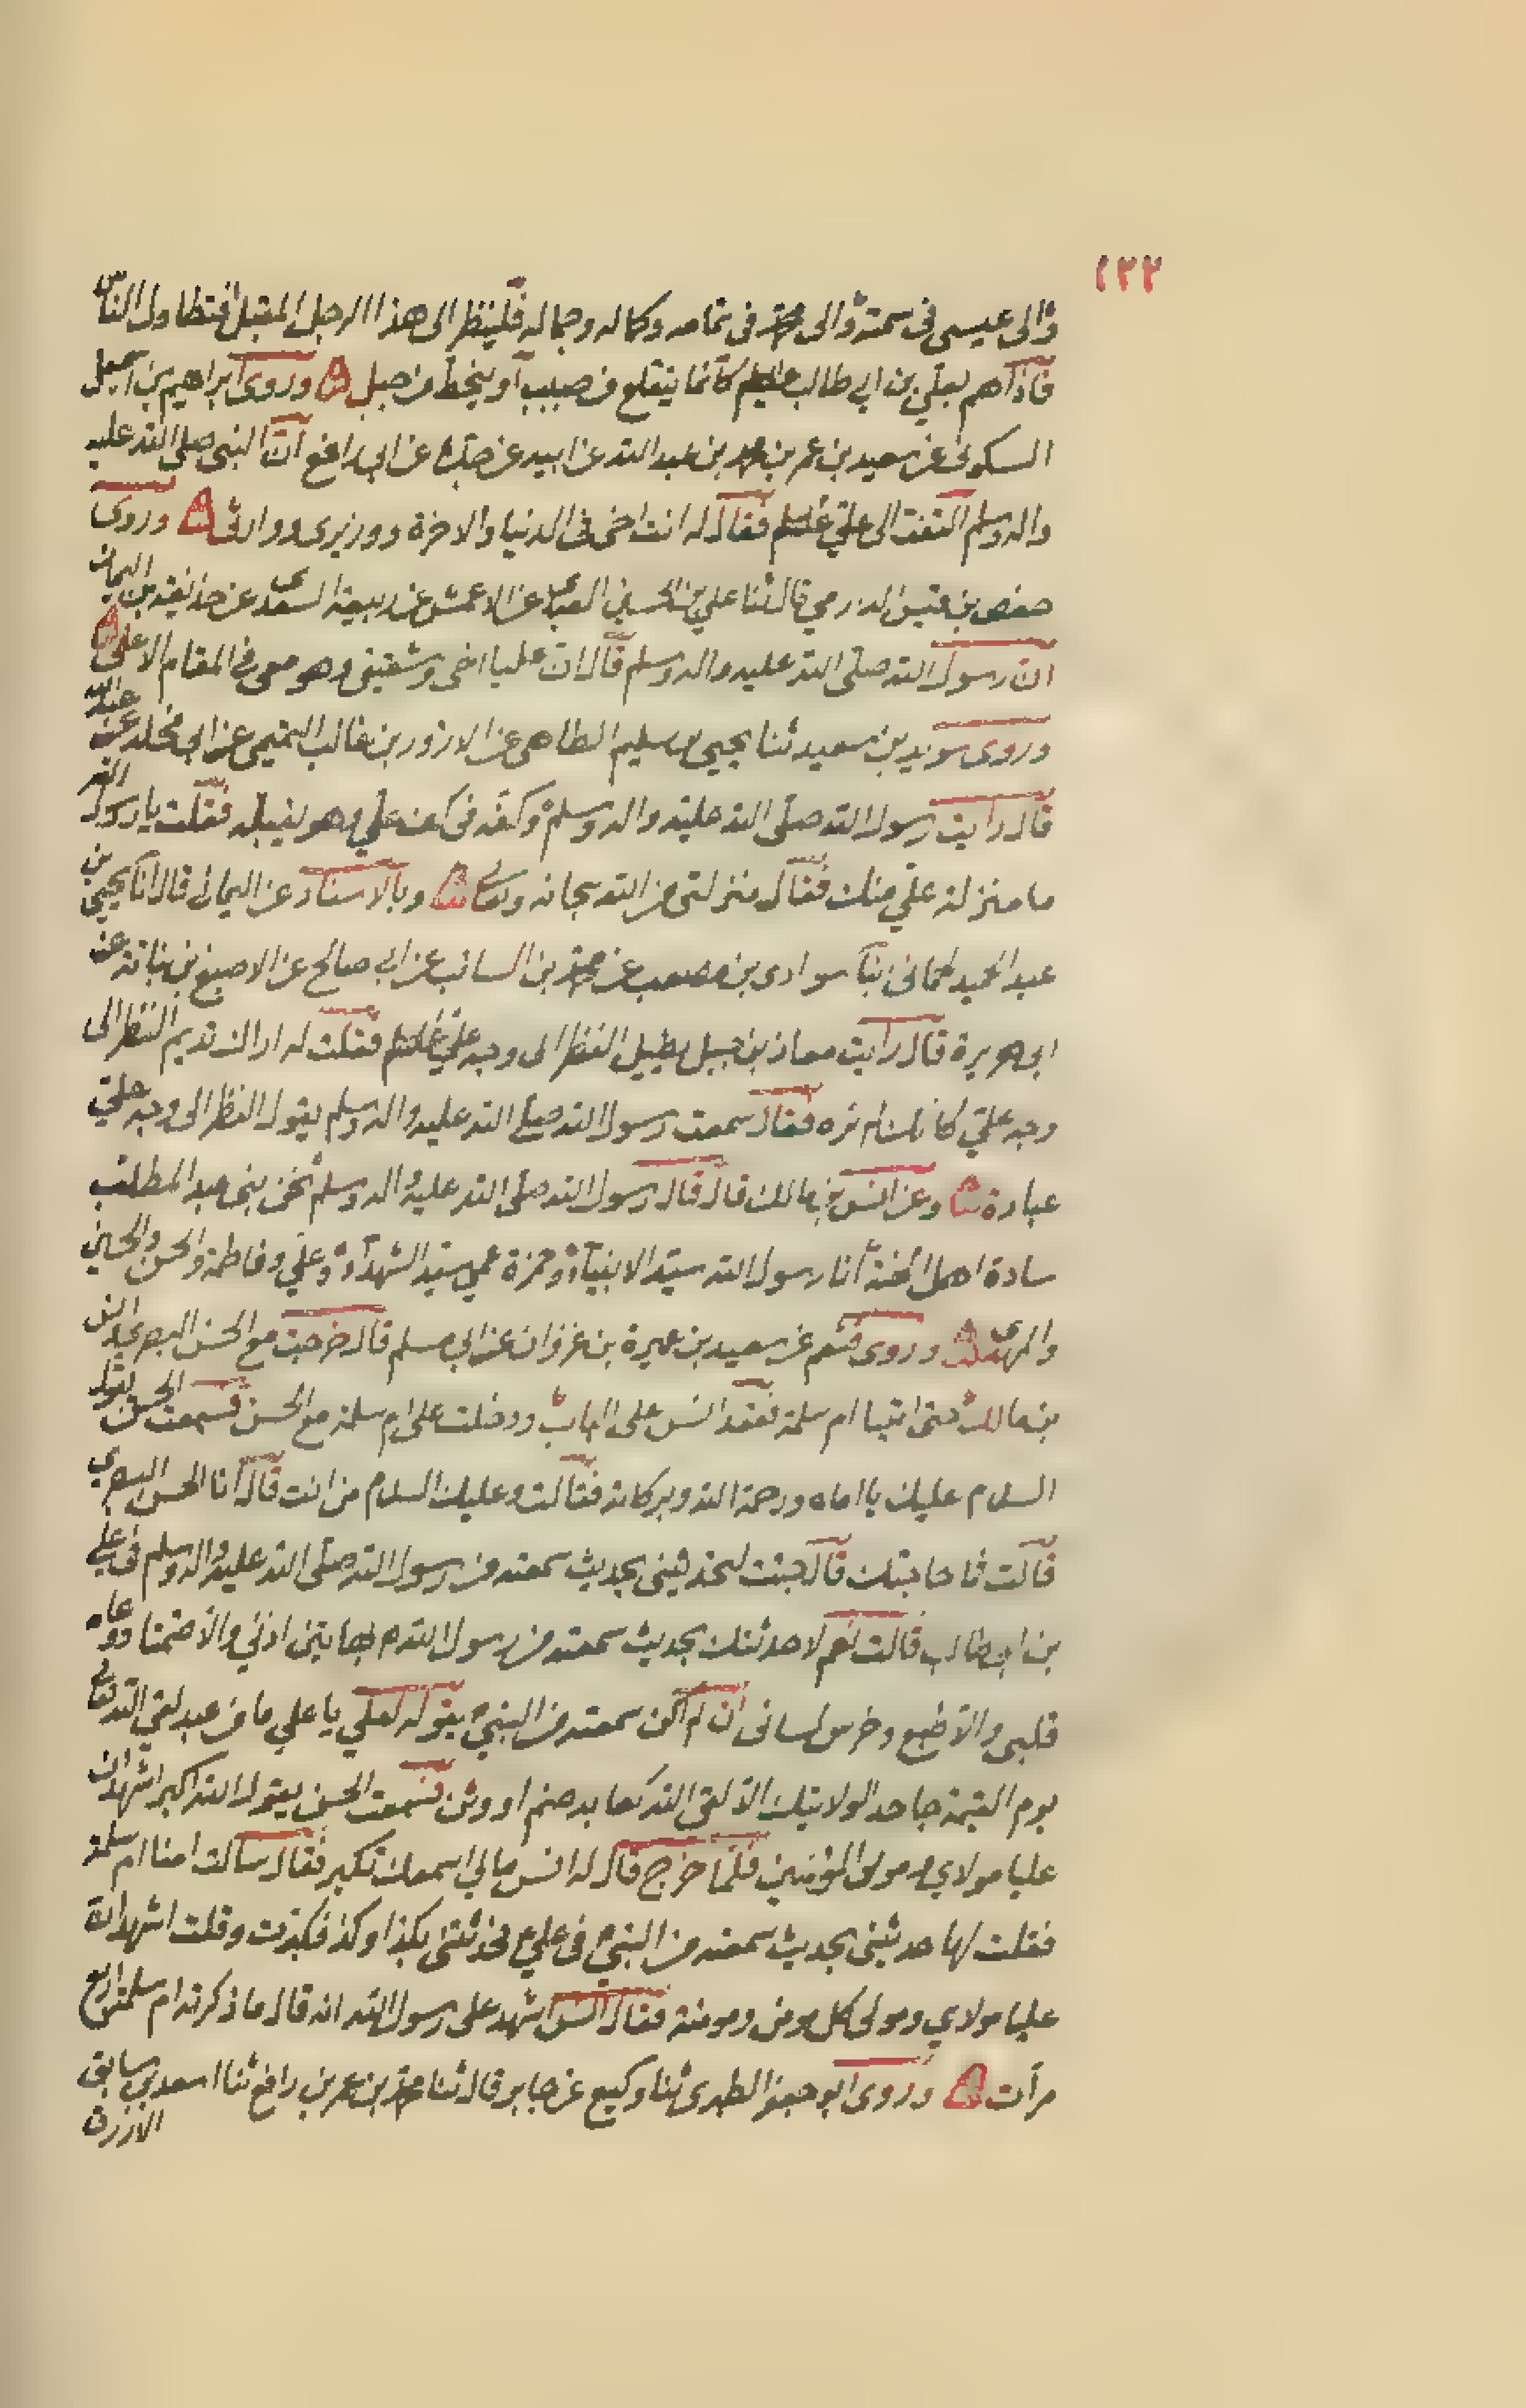 ١٣٢
والى عيسى فى سمته والى محمد فى تمامه وكماله وجماله فلينظر الى هذا الرجل المقبل فتطاول الناس
فاذاهم بعلي بن ابي طالب عليه السلم كانما ينقلع من صبب او ينحط من جبل وروى ابراهيم بن اسمعيل
السكونى عن سعيد بن عمر بن محمد بن عبد الله عن ابيه عن جده عن ابى رافع ان النبى صلى الله عليه
واله وسلم التفت الى علي عليه السلم فقال له انت اخى فى الدنيا والاخرة ووزيرى ووارثى وروى
حفص بن قيس الدارمي قال ثنا علي بن الحسين العبدى عن الاعمش عن ربيعة السعدى عن حذيفة بن اليمان
ان رسول الله صلى الله عليه واله وسلم قال ان عليا اخى وشقيقى وهو معى فى المقام الاعلى
وروى سويد بن سعيد ثنا يحيى بن سليم الطاهى عن الازور بن غالب التميمى عن ابى مخلد عن عبد الله
قال رايت رسول الله صلى الله عليه واله وسلم وكفه فى كف علي وهو يقبله فقلت يا رسول الله
ما منزلة علي منك فقال منزلتى من الله سبحانه وتعالى وبالاسناد عن اليمانى قال انا يحيى بن
عبد الحميد الحمانى انبا سوادى بن مصعب عن محمد بن السائب عن ابي صالح عن الاصبغ بن نباتة عن
ابى هريرة قال رايت معاذ بن جبل يطيل النظر الى وجه علي عليه السلم فقلت له اراك تديم النظر الى
وجه علي كانك لم تره فقال سمعت رسول الله صلى الله عليه واله وسلم يقول النظر الى وجه علي
عبادة وعن انس بن مالك قال قال رسول الله صلى الله عليه واله وسلم نحن بنى عبد المطلب
سادة اهل الجنة انا رسول الله سيد الانبياء وحمزة عمي سيد الشهداء وعلي وفاطمة والحسن والحسين
والمهدى وروى قثم عن سعيد بن عميرة بن غزوان عن ابي مسلم قال خرجت مع الحسن البصرى وانس
بن مالك حتى اتينا ام سلمة فقعد انس على الباب ودخلت على ام سلمة مع الحسن فسمعت الحسن يقول
السلام عليك يا اماه ورحمة الله وبركاته فقالت وعليك السلام من انت قال انا الحسن البصري
قالت ما حاجتك قال جئت لتحدثينى بحديث سمعته من رسول الله صلى الله عليه واله وسلم فى علي
بن ابى طالب قالت نعم لاحدثنك بحديث سمعته من رسول الله م بهاتين اذنى والا صمتا ووعاه
قلبى والا طبع وخرس لسانى ان لم اكن سمعته من النبى يقول لعلي يا علي ما من عبد لقى الله تعالى
يوم القيمة جاحدا لولايتك الا لقى الله كعابد صنم او وثن فسمعت الحسن يقول الله اكبر اشهد ان
عليا مولاي ومولى المؤمنين فلما خرج قال له انس مالي اسمعك تكبر فقال سالت امنا ام سلمة
فقلت لها حدثينى بحديث سمعته من النبى فى علي فحدثتنى بكذا وكذا فكبرت وقلت اشهد ان
عليا مولاي ومولى كل مومن ومومنة فقال انس اشهد على رسول الله انه قال ما ذكرته ام سلمة اربع
مرات وروى ابو جعفر الطبرى ثنا وكيع عن جابر قال ثنا محمد بن عمر بن رافع ثنا اسعد بن سابق
الازرق